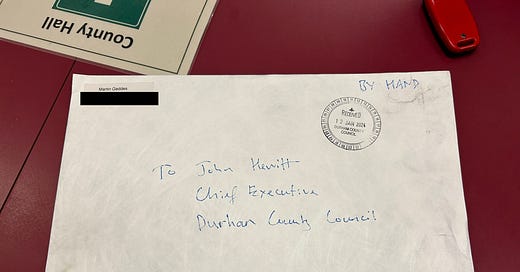 County Hall
Martin Geddes
BY HAND
RECEIVED
12 JAN 2024
DURHAM COUNTY
COUNCIL
To John Hewitt
Chief Executive
Durham County Council